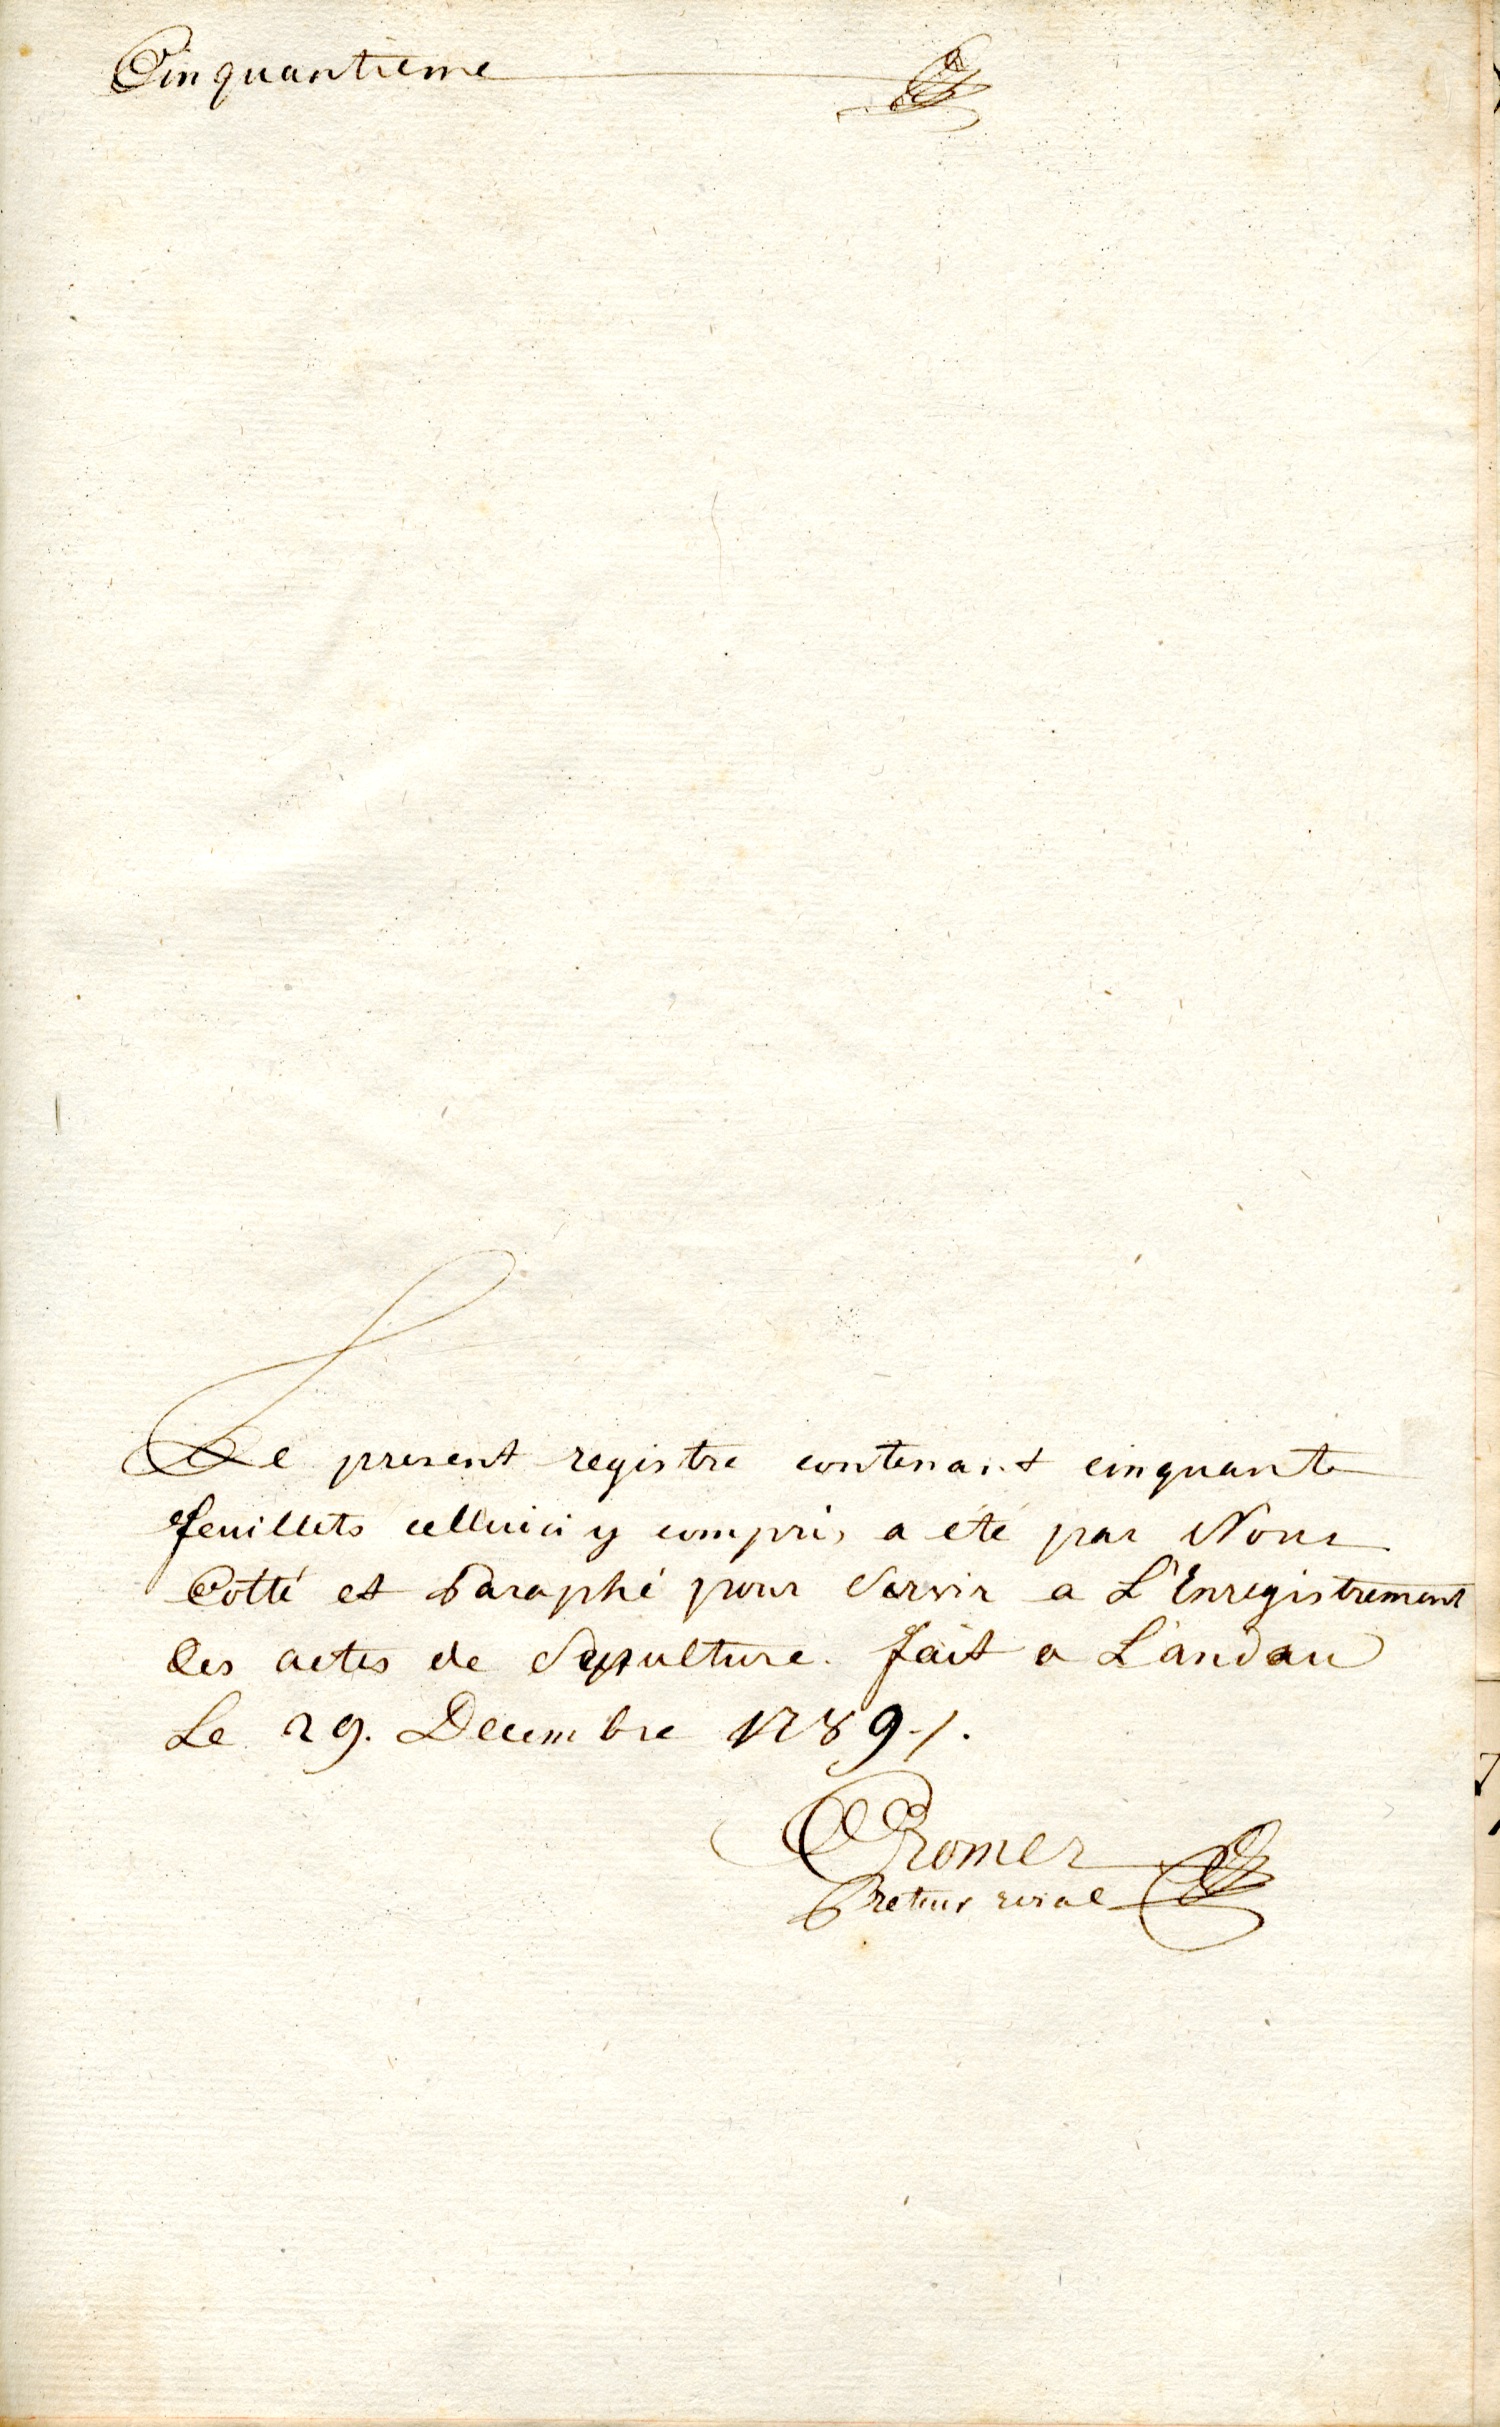 Cinquantieme
Le present registre contenant cinquante
feuillets celluici y compris a eté par Nous
Cotté et Paraphé pour Servir a L'Enregistrement
des actes de Sepulture. fait a Landau
Le 29. Decembre 1789 ./.
Romer
Preteur roial